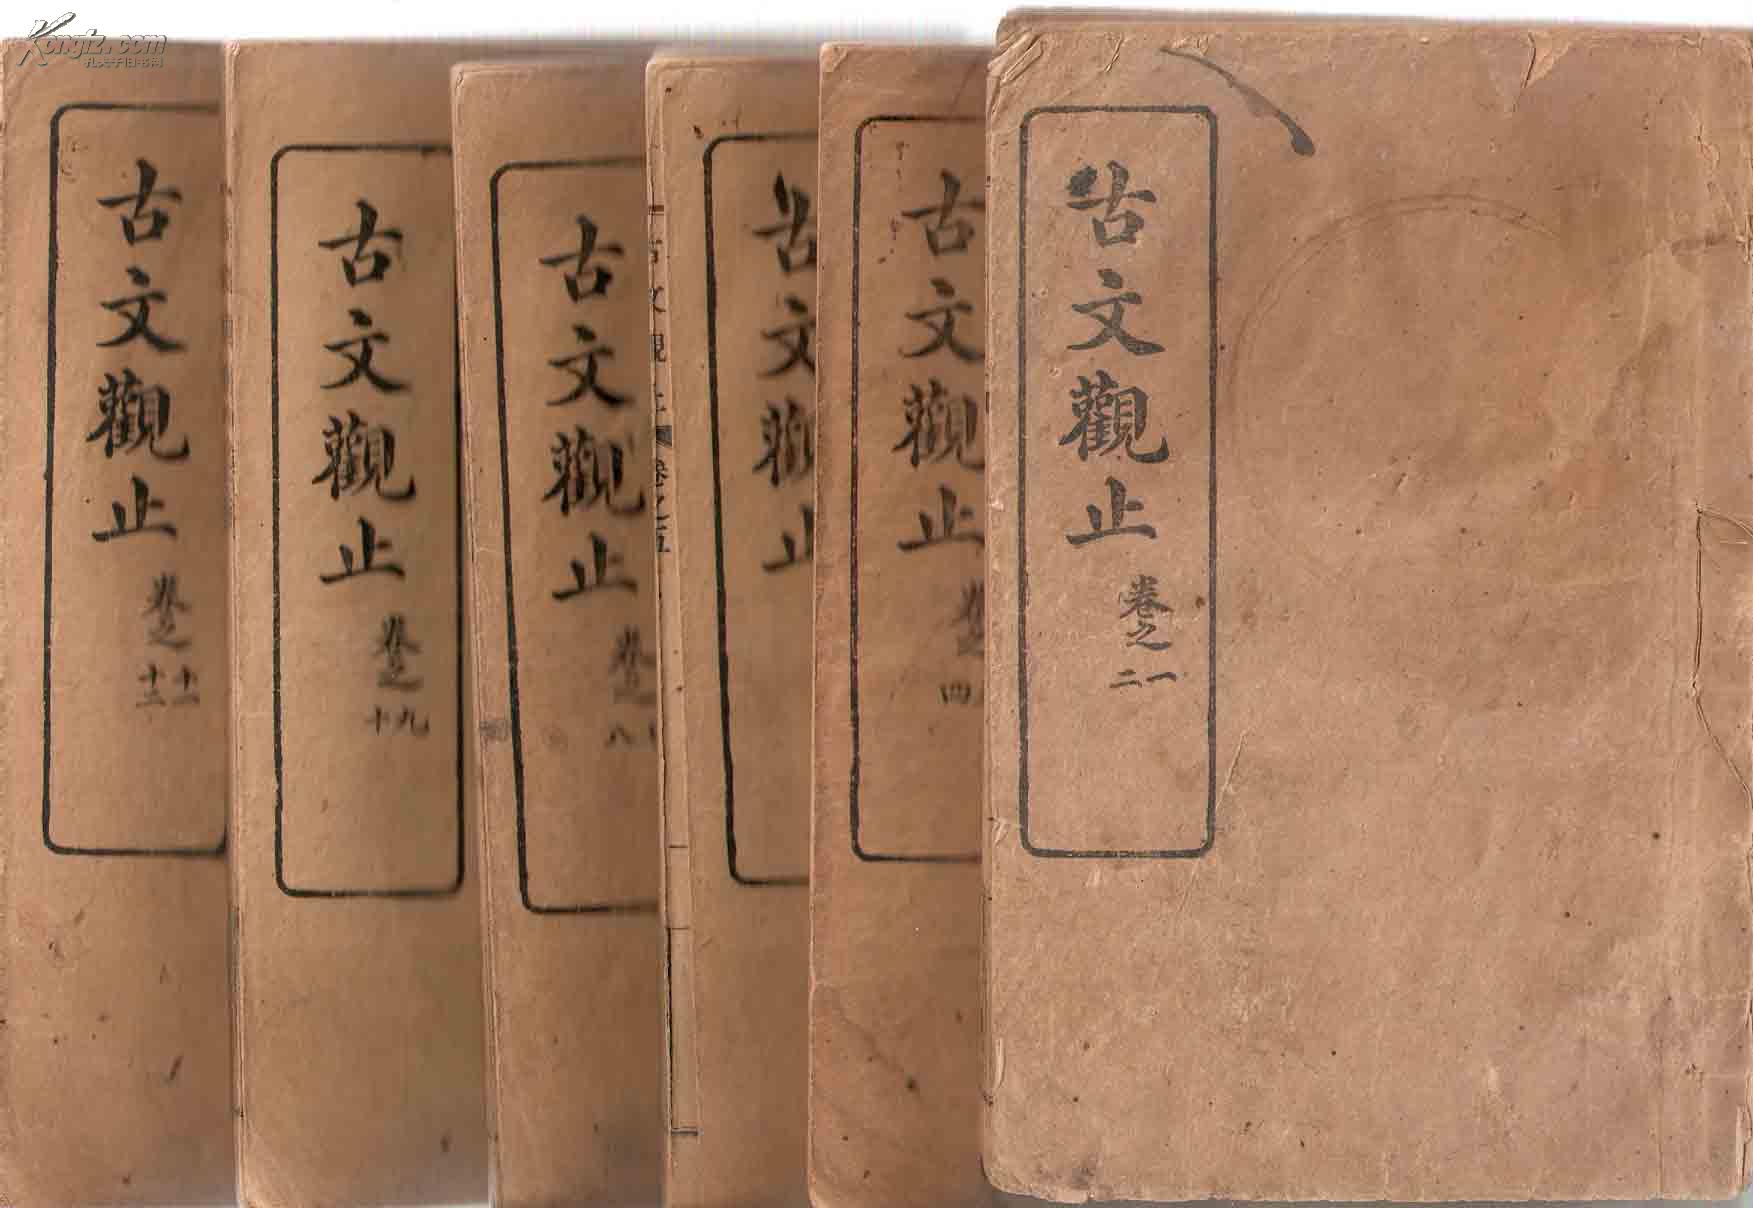 Kongfz.com
孔夫子旧书网
古文觀止
卷之
一
二
古文觀止
卷之
四
古文觀止
古文觀止
卷之五
古文觀止
卷之
八
古文觀止
卷之
九
十
古文觀止
卷之
十一
十二